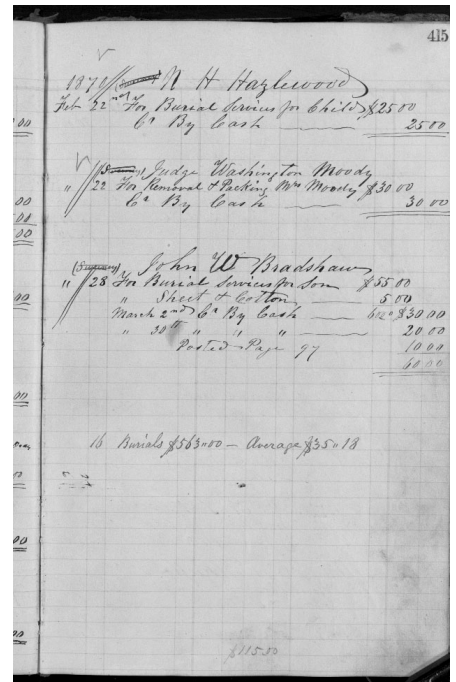 415
1879 N H Hazlewood
Feb 22nd For Burial Services for Child $25 00
Cr By Cash 25 00
Judge Washington Moody
" 22 For Removal & Packing Mrs Moody $30 00
Cr By Cash 30 00
John W Bradshaw
" 28 For Burial Services for Son $55 00
" Sheet & Cotton 5 00
March 2nd Cr By Cash 60 00 $30 00
" 30th " " " 20 00
Posted Page 97 10 00
60 00
16 Burials $563 " 00 — Average $35 " 18
$115.00